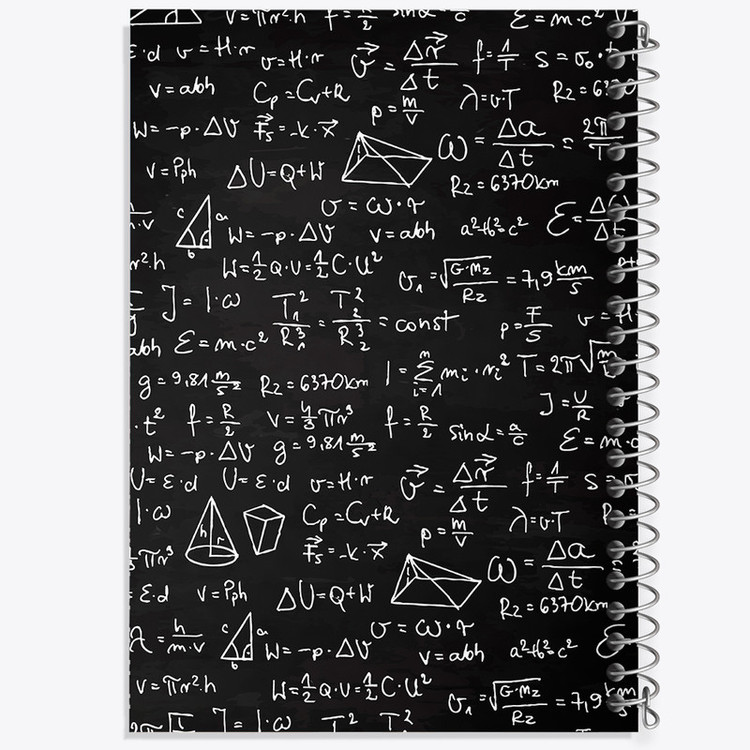 v=πr²·h f=R/2 sinα=a/c E=m·c²
E·d v=H·r v=H·r v⃗=Δr⃗/Δt f=1/T s=v₀·t
v=abh Cp=Cv+R p=m/V λ=v·T Rz=6370
W=-p·ΔV F⃗s=-k·x⃗ ω=Δa/Δt=2π/T
v=Pph ΔU=Q+W Rz=6370km
c a b W=-p·ΔV v=ω·r v=abh a²+b²=c² E=
r²·h W=1/2Q·U=1/2C·U² v₁=√(G·Mz/Rz)=7,9km/s
J=I·ω T₁²/R₁³=T₂²/R₂³=const p=F/S v=H
abh E=m·c²
g=9,81m/s² Rz=6370km I=Σmi·ri² n i=1 T=2π√
·t² f=R/2 v=4/3πr³ f=R/2 sinα=a/c J=U/R
W=-p·ΔV g=9,81m/s² E=m·c
U=E·d U=E·d v=H·r v⃗=Δr⃗/Δt f=1/T s=
I·ω h r Cp=Cv+R p=m/V λ=v·T
πr³ F⃗s=-k·x⃗ ω=Δa/Δt=
E·d v=Pph ΔU=Q+W Rz=6370km
λ=h/m·v c a b W=-p·ΔV v=ω·r v=abh a²+b²=c²
v=πr²·h W=1/2Q·U=1/2C·U² v₁=√(G·Mz/Rz)=7,9km/s
J=I·ω T² T²